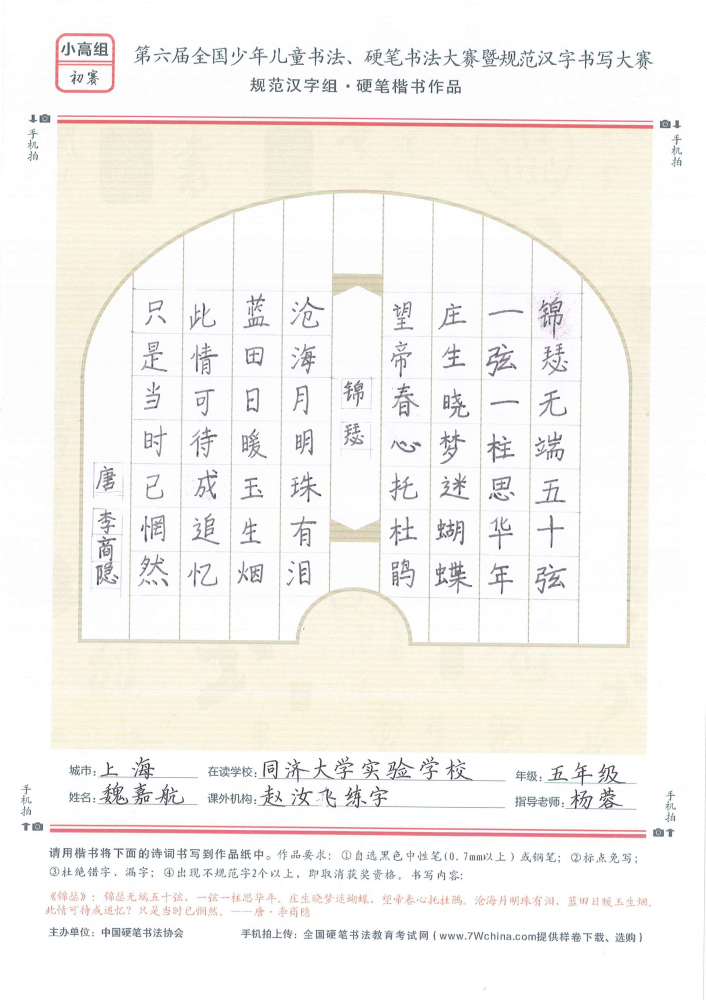 小高组
初赛
第六届全国少年儿童书法、硬笔书法大赛暨规范汉字书写大赛
规范汉字组·硬笔楷书作品
手机拍
手机拍
锦瑟无端五十弦
一弦一柱思华年
庄生晓梦迷蝴蝶
望帝春心托杜鹃
锦瑟
沧海月明珠有泪
蓝田日暖玉生烟
此情可待成追忆
只是当时已惘然
唐 李商隐
城市：上海 在读学校：同济大学实验学校 年级：五年级
姓名：魏嘉航 课外机构：赵汝飞练字 指导老师：杨蓉
手机拍
手机拍
请用楷书将下面的诗词书写到作品纸中。作品要求：①自选黑色中性笔(0.7mm以上)或钢笔；②标点免写；
③杜绝错字、漏字；④出现不规范字2个以上，即取消获奖资格。书写内容：
《锦瑟》：锦瑟无端五十弦，一弦一柱思华年。庄生晓梦迷蝴蝶，望帝春心托杜鹃。沧海月明珠有泪，蓝田日暖玉生烟。
此情可待成追忆？只是当时已惘然。——唐·李商隐
主办单位：中国硬笔书法协会 手机拍上传：全国硬笔书法教育考试网(www.7Wchina.com提供样卷下载、选购)